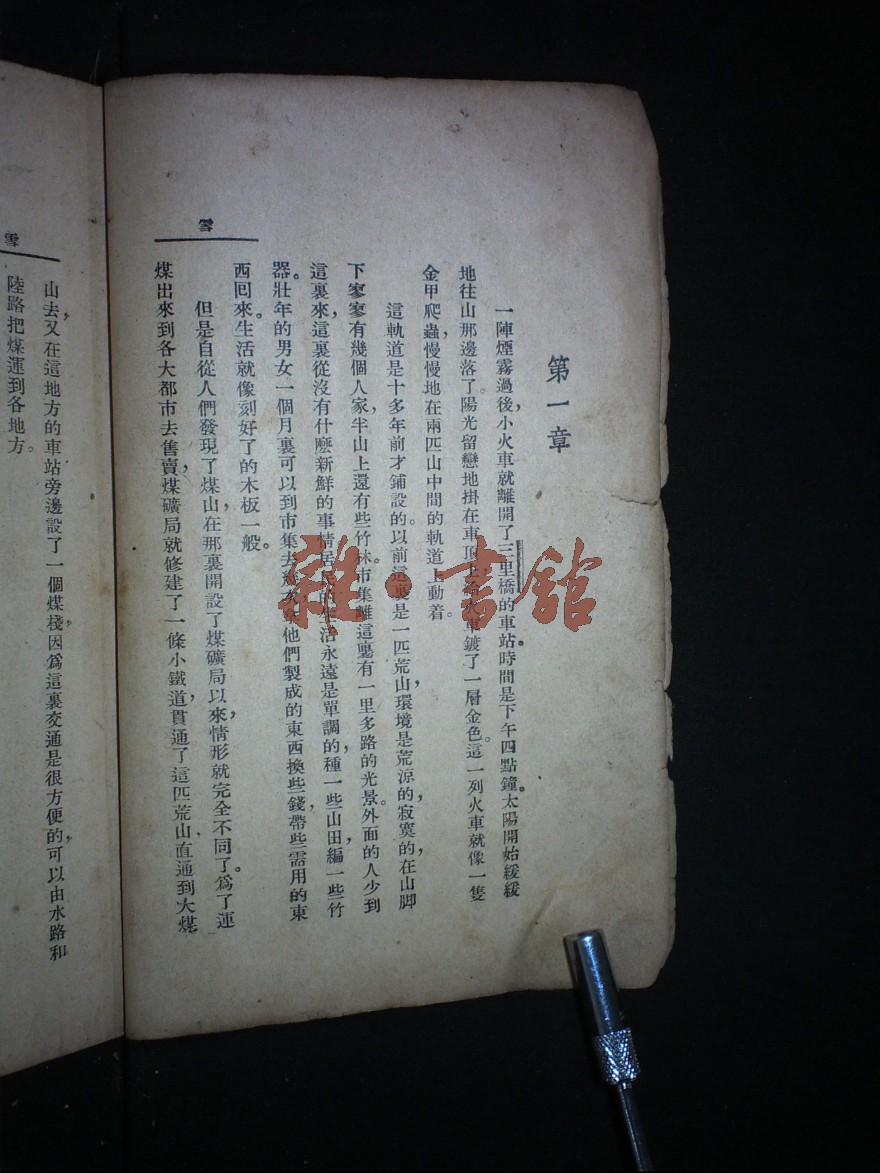 雪
第一章
一陣煙霧過後，小火車就離開了三里橋的車站。時間是下午四點鐘。太陽開始緩緩
地往山那邊落了。陽光留戀地掛在車頂上，給火車鍍了一層金色。這一列火車就像一隻
金甲爬蟲慢慢地在兩匹山中間的軌道上動着。
這軌道是十多年前才鋪設的。以前這裏是一匹荒山，環境是荒涼的，寂寞的，在山脚
下寥寥有幾個人家，半山上還有些竹林。市集離這裏有一里多路的光景。外面的人少到
這裏來，這裏從沒有什麽新鮮的事情，居民的生活永遠是單調的，種一些山田，編一些竹
器。壯年的男女一個月裏可以到市集去幾次，拿他們製成的東西換些錢，帶些需用的東
西回來。生活就像刻好了的木板一般。
但是自從人們發現了煤山，在那裏開設了煤礦局以來，情形就完全不同了。爲了運
煤出來到各大都市去售賣，煤礦局就修建了一條小鐵道，貫通了這匹荒山，直通到大煤
雪
山去，又在這地方的車站旁邊設了一個煤棧，因爲這裏交通是很方便的，可以由水路和
陸路把煤運到各地方。
雜·書館